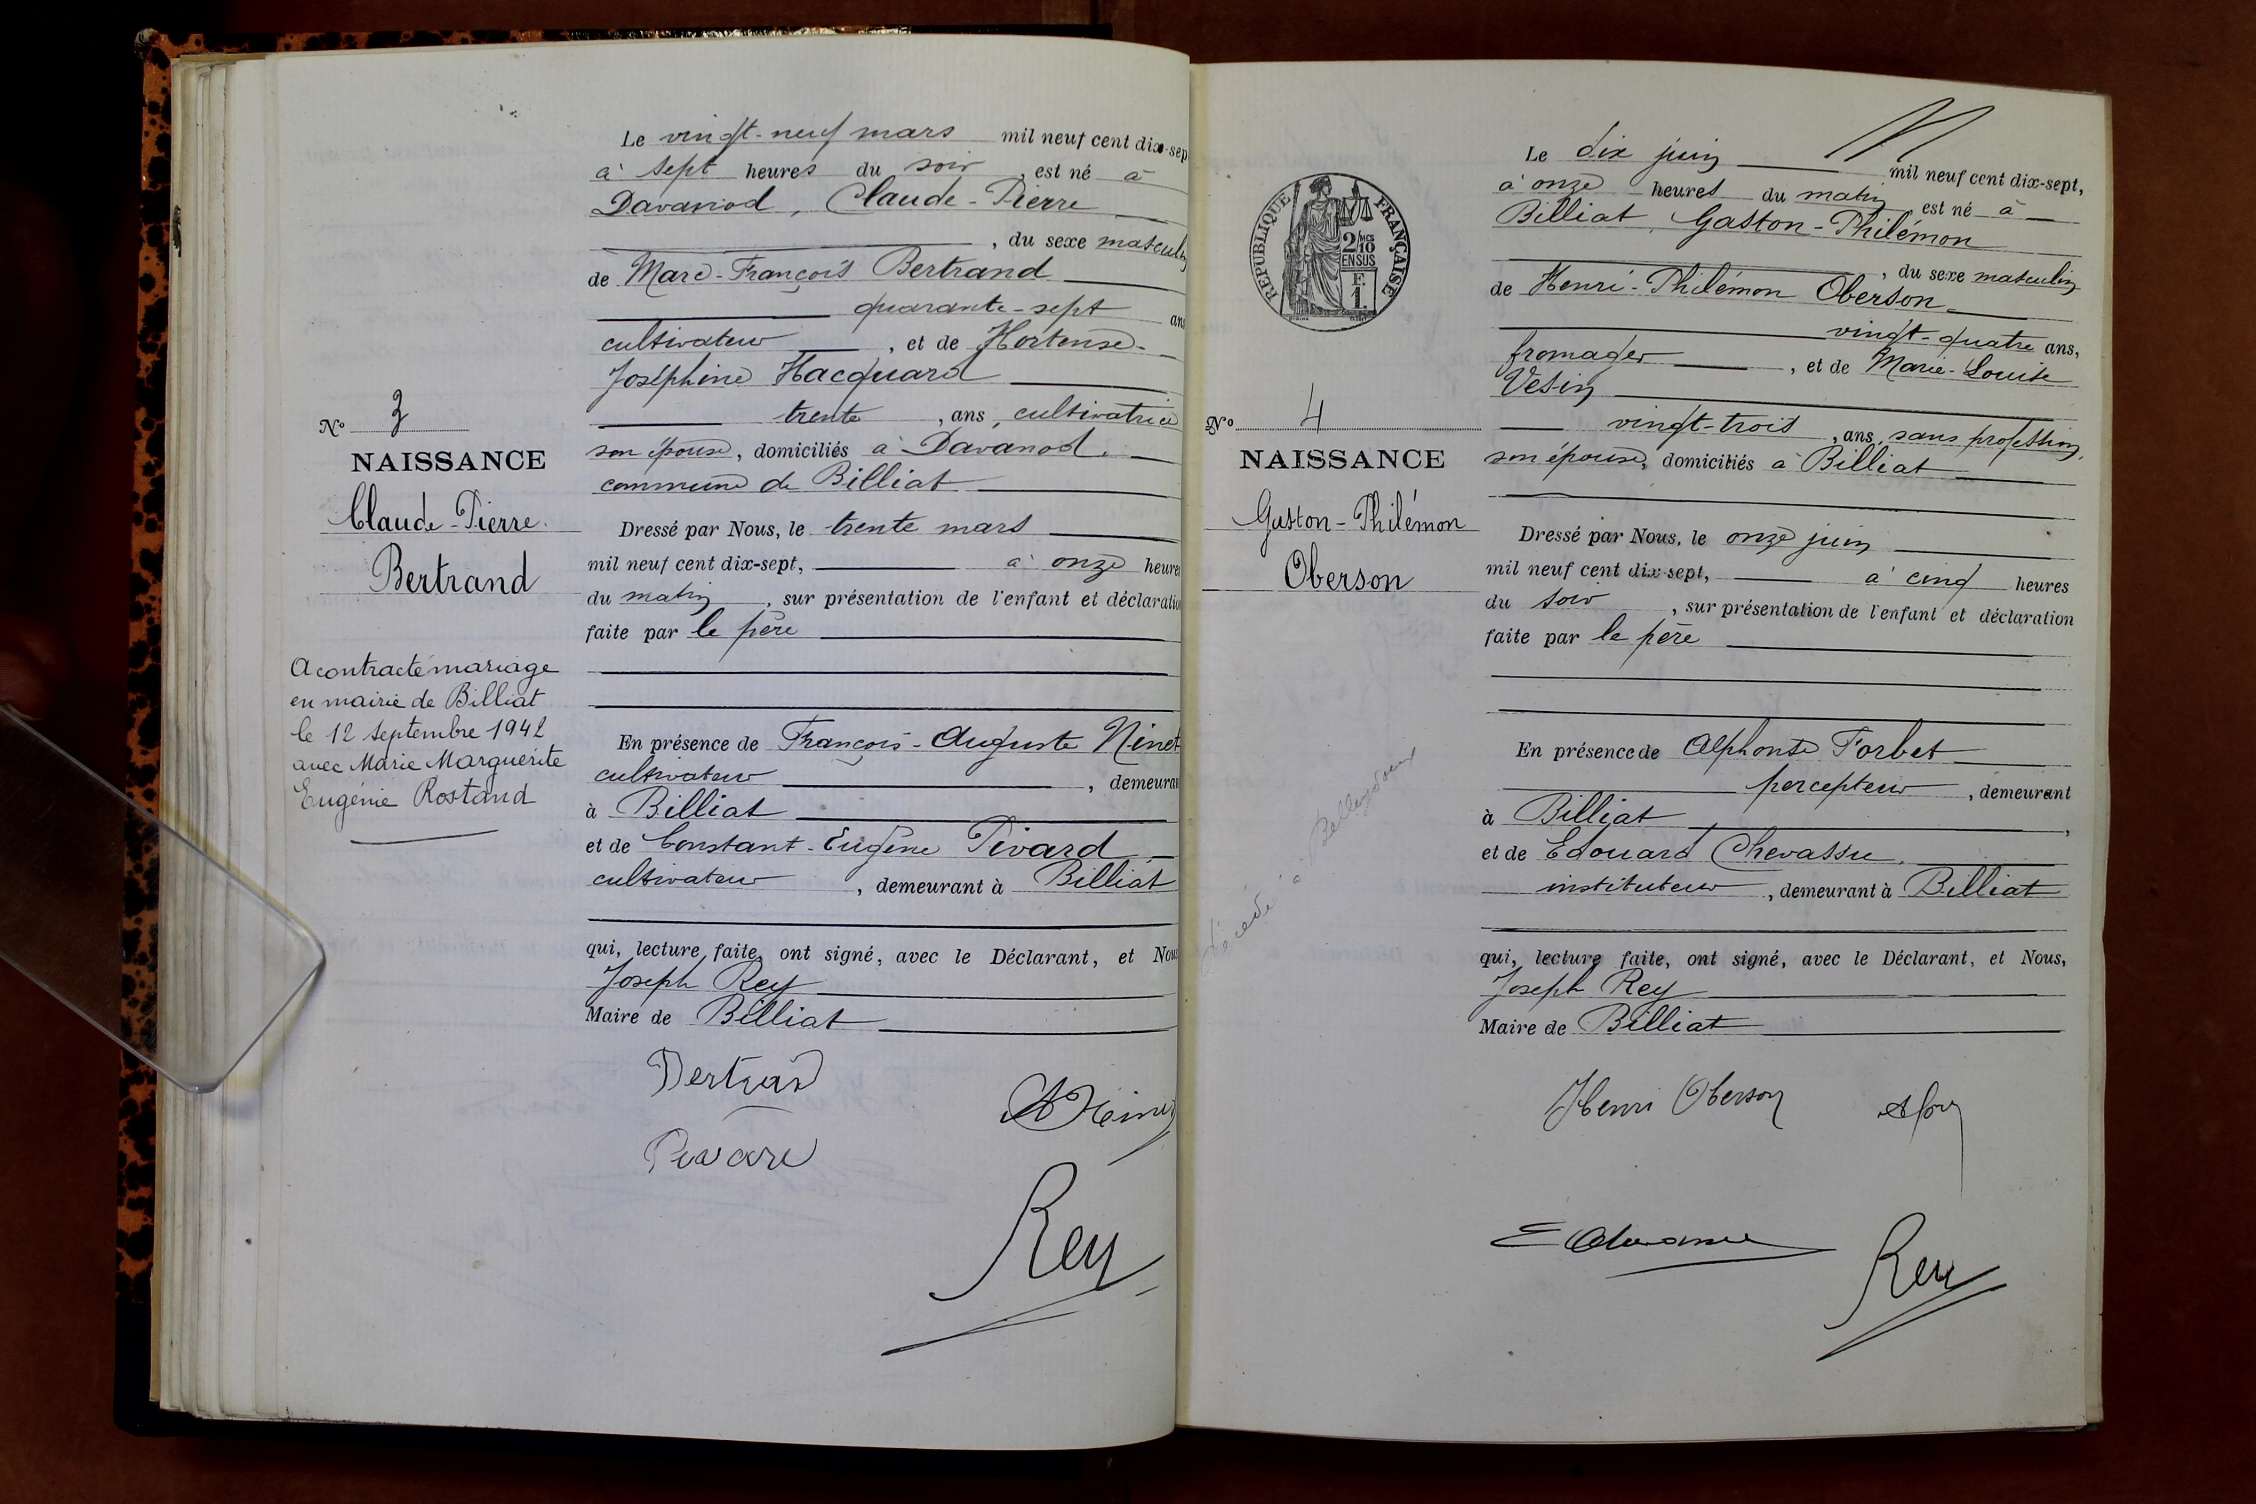 Le vingt-neuf mars mil neuf cent dix-sep
à sept heures du soir, est né à
Davanod, Claude-Pierre
, du sexe masculin
de Marc-François Bertrand
quarante-sept ans
cultivateur, et de Hortense-
Joséphine Hacquard
trente, ans, cultivatrice
son épouse, domiciliés à Davanod,
commune de Billiat
No 3
NAISSANCE
Claude-Pierre
Bertrand
Dressé par Nous, le trente mars
mil neuf cent dix-sept, à onze heures
du matin, sur présentation de l'enfant et déclaratio
faite par le père
A contracté mariage
en mairie de Billiat
le 12 septembre 1942
avec Marie Marguerite
Eugénie Rostand
En présence de François-Auguste Ninet
cultivateur, demeuran
à Billiat
et de Constant-Eugène Pivard,
cultivateur, demeurant à Billiat
qui, lecture faite, ont signé, avec le Déclarant, et Nous
Joseph Rey
Maire de Billiat
Bertrand
Pivard
Rey
RÉPUBLIQUE FRANÇAISE
2/10 EN SUS
F.
1.
Le dix juin mil neuf cent dix-sept,
à onze heures du matin est né à
Billiat, Gaston-Philémon
, du sexe masculin
de Henri-Philémon Oberson
vingt-quatre ans,
fromager, et de Marie-Louise
Vesin
vingt-trois, ans, sans profession,
son épouse, domiciliés à Billiat
No 4
NAISSANCE
Gaston-Philémon
Oberson
Dressé par Nous, le onze juin
mil neuf cent dix-sept, à cinq heures
du soir, sur présentation de l'enfant et déclaration
faite par le père
décédé à Bellegarde
En présence de Alphonse Forbet
percepteur, demeurant
à Billiat,
et de Edouard Chevassu,
instituteur, demeurant à Billiat
qui, lecture faite, ont signé, avec le Déclarant, et Nous,
Joseph Rey
Maire de Billiat
Henri Oberson
E Chevassu
Rey